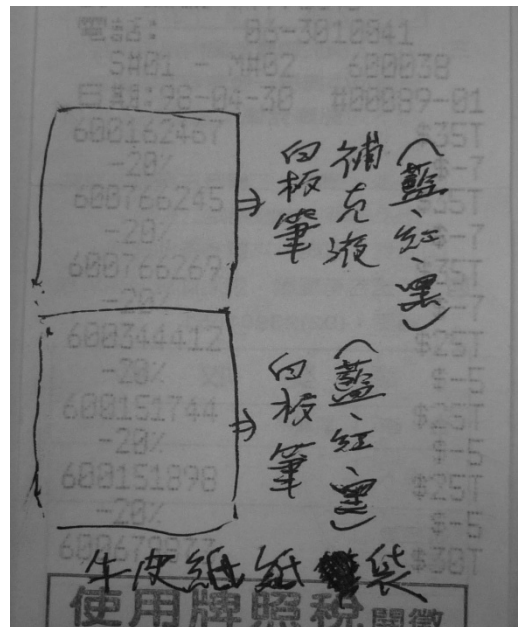 電話: 06-3010041
S#01 - M#02 600038
日期:98-04-30 #00089-01
600162467 $35T
-20% $-7
600766245 $35T
-20% $-7
600766269 $35T
-20% $-7
600344412 $25T
-20% $-5
600151744 $25T
-20% $-5
600151898 $25T
-20% $-5
$30T
白板筆
補充液
(藍、紅、黑)
白板筆
(藍、紅、黑)
牛皮紙紙袋
使用牌照稅開徵